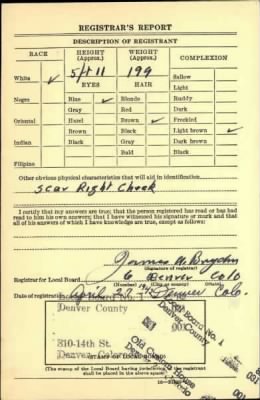 REGISTRAR'S REPORT
DESCRIPTION OF REGISTRANT
RACE HEIGHT (Approx.) WEIGHT (Approx.) COMPLEXION
White ✓ 5 ft 11 199 Sallow
EYES HAIR Light
Negro Blue ✓ Blonde Ruddy
Gray Red Dark
Oriental Hazel Brown ✓ Freckled
Brown Black Light brown ✓
Indian Black Gray Dark brown
Bald Black
Filipino
Other obvious physical characteristics that will aid in identification
Scar Right Cheek
I certify that my answers are true; that the person registered has read or has had
read to him his own answers; that I have witnessed his signature or mark and that
all of his answers of which I have knowledge are true, except as follows:
(Signature of registrar)
Registrar for Local Board 6 Denver Colo
(Number) (City or county) (State)
Date of registration April 27 194 Denver Colo.
Local Board No. 1
Denver County
001
310-14th St.
Denver, Colo
(STAMP OF LOCAL BOARD)
(The stamp of the Local Board having jurisdiction of the registrant
shall be placed in the above space)
Local Board No. 1
Denver County
Old Customs House
Denver, Colorado